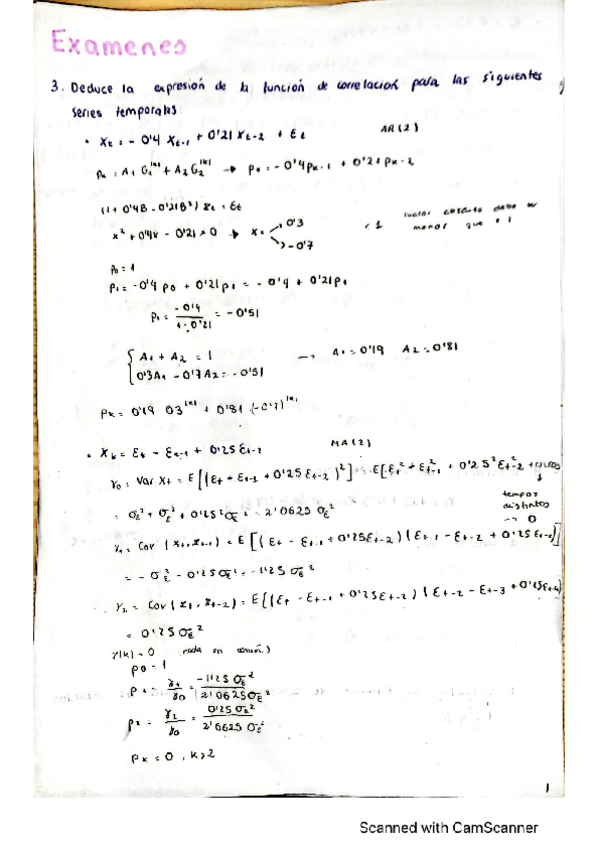 Examenes
3. Deduce la expresión de la función de correlación para las siguientes
series temporales:
• Xt = - 0'4 Xt-1 + 0'21 Xt-2 + Et AR(2)
ρk = A1 G1^|k| + A2 G2^|k| → ρk = - 0'4ρk-1 + 0'21ρk-2
(1 + 0'4B - 0'21B²) Xt = Et
x² + 0'4x - 0'21 = 0 → x = 0'3
-0'7
< 1 (valor absoluto debe ser
menor que 1
ρ0 = 1
ρ1 = -0'4 ρ0 + 0'21ρ1 = - 0'4 + 0'21ρ1
ρ1 = -0'4 / 1-0'21 = -0'51
{ A1 + A2 = 1
0'3A1 - 0'7A2 = -0'51
→ A1 = 0'19 A2 = 0'81
ρk = 0'19 · 0'3^|k| + 0'81 (-0'7)^|k|
• Xt = Et - Et-1 + 0'25 Et-2 MA(2)
γ0 = Var Xt = E[(Et - Et-1 + 0'25 Et-2)²] = E[Et² + Et-1² + 0'25² Et-2² +
tempos
distintos
→ 0
= σε² + σε² + 0'25² σε² = 2'0625 σε²
γ1 = Cov (Xt, Xt-1) = E[(Et - Et-1 + 0'25Et-2)(Et-1 - Et-2 + 0'25 Et-3)]
= - σε² - 0'25 σε² = -1'25 σε²
γ2 = Cov (Xt, Xt-2) = E[(Et - Et-1 + 0'25Et-2)(Et-2 - Et-3 + 0'25Et-4)
= 0'25 σε²
γ(k) = 0 nada en común)
ρ0 = 1
ρ1 = γ1/γ0 = -1'25 σε² / 2'0625 σε²
ρ2 = γ2/γ0 = 0'25 σε² / 2'0625 σε²
ρk = 0, k>2
1
Scanned with CamScanner